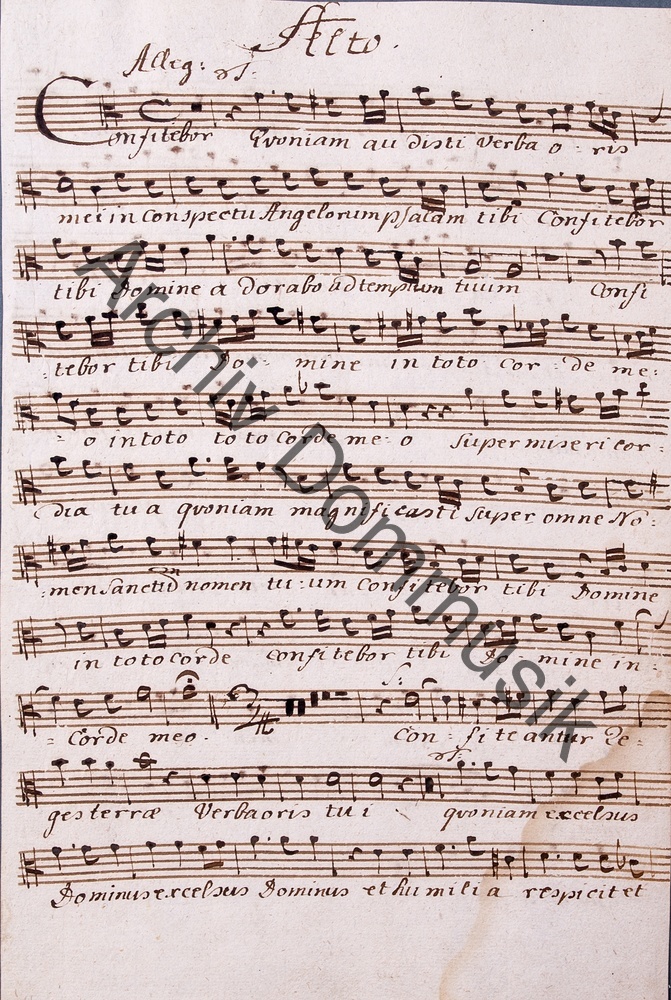 Alto.
Alleg:
Confitebor Qvoniam audisti verba o: ris
mei in Conspectu Angelorum psalam tibi Confitebor
tibi Domine adorabo ad templum tuum Confi
tebor tibi Do: mine in toto cor: de me:
:o in toto toto Corde me: o super miseri cor:
dia tua qvoniam magnificasti super omne No:
:men Sanctum nomen tu:um Confitebor tibi Domine
in toto Corde Confitebor tibi Do: mine in:
:Corde meo. Con: fiteantur Re:
ges terræ Verba oris tui qvoniam excelsus
Dominus excelsus Dominus et humilia respicit et
Archiv Dommusik